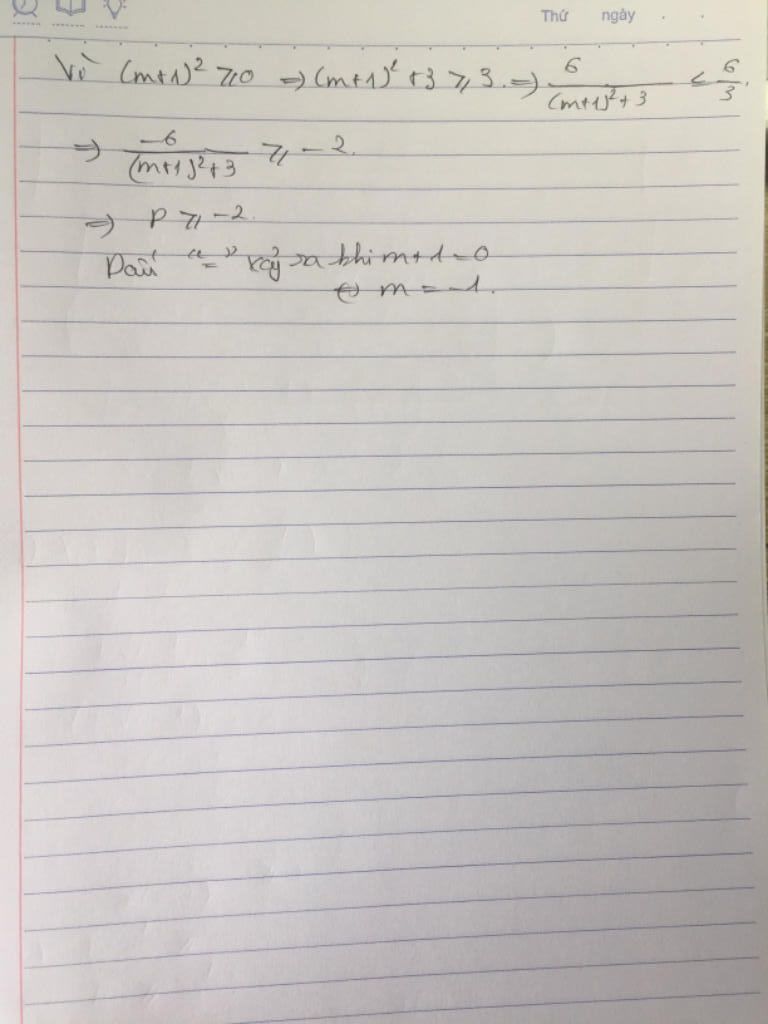 Thứ ngày . .
Vì (m+1)² ⩾ 0 => (m+1)² + 3 ⩾ 3. => 6/((m+1)²+3) ≤ 6/3.
=> -6/((m+1)²+3) ⩾ -2.
=> P ⩾ -2.
Dấu "=" xảy ra khi m+1=0
<=> m = -1.